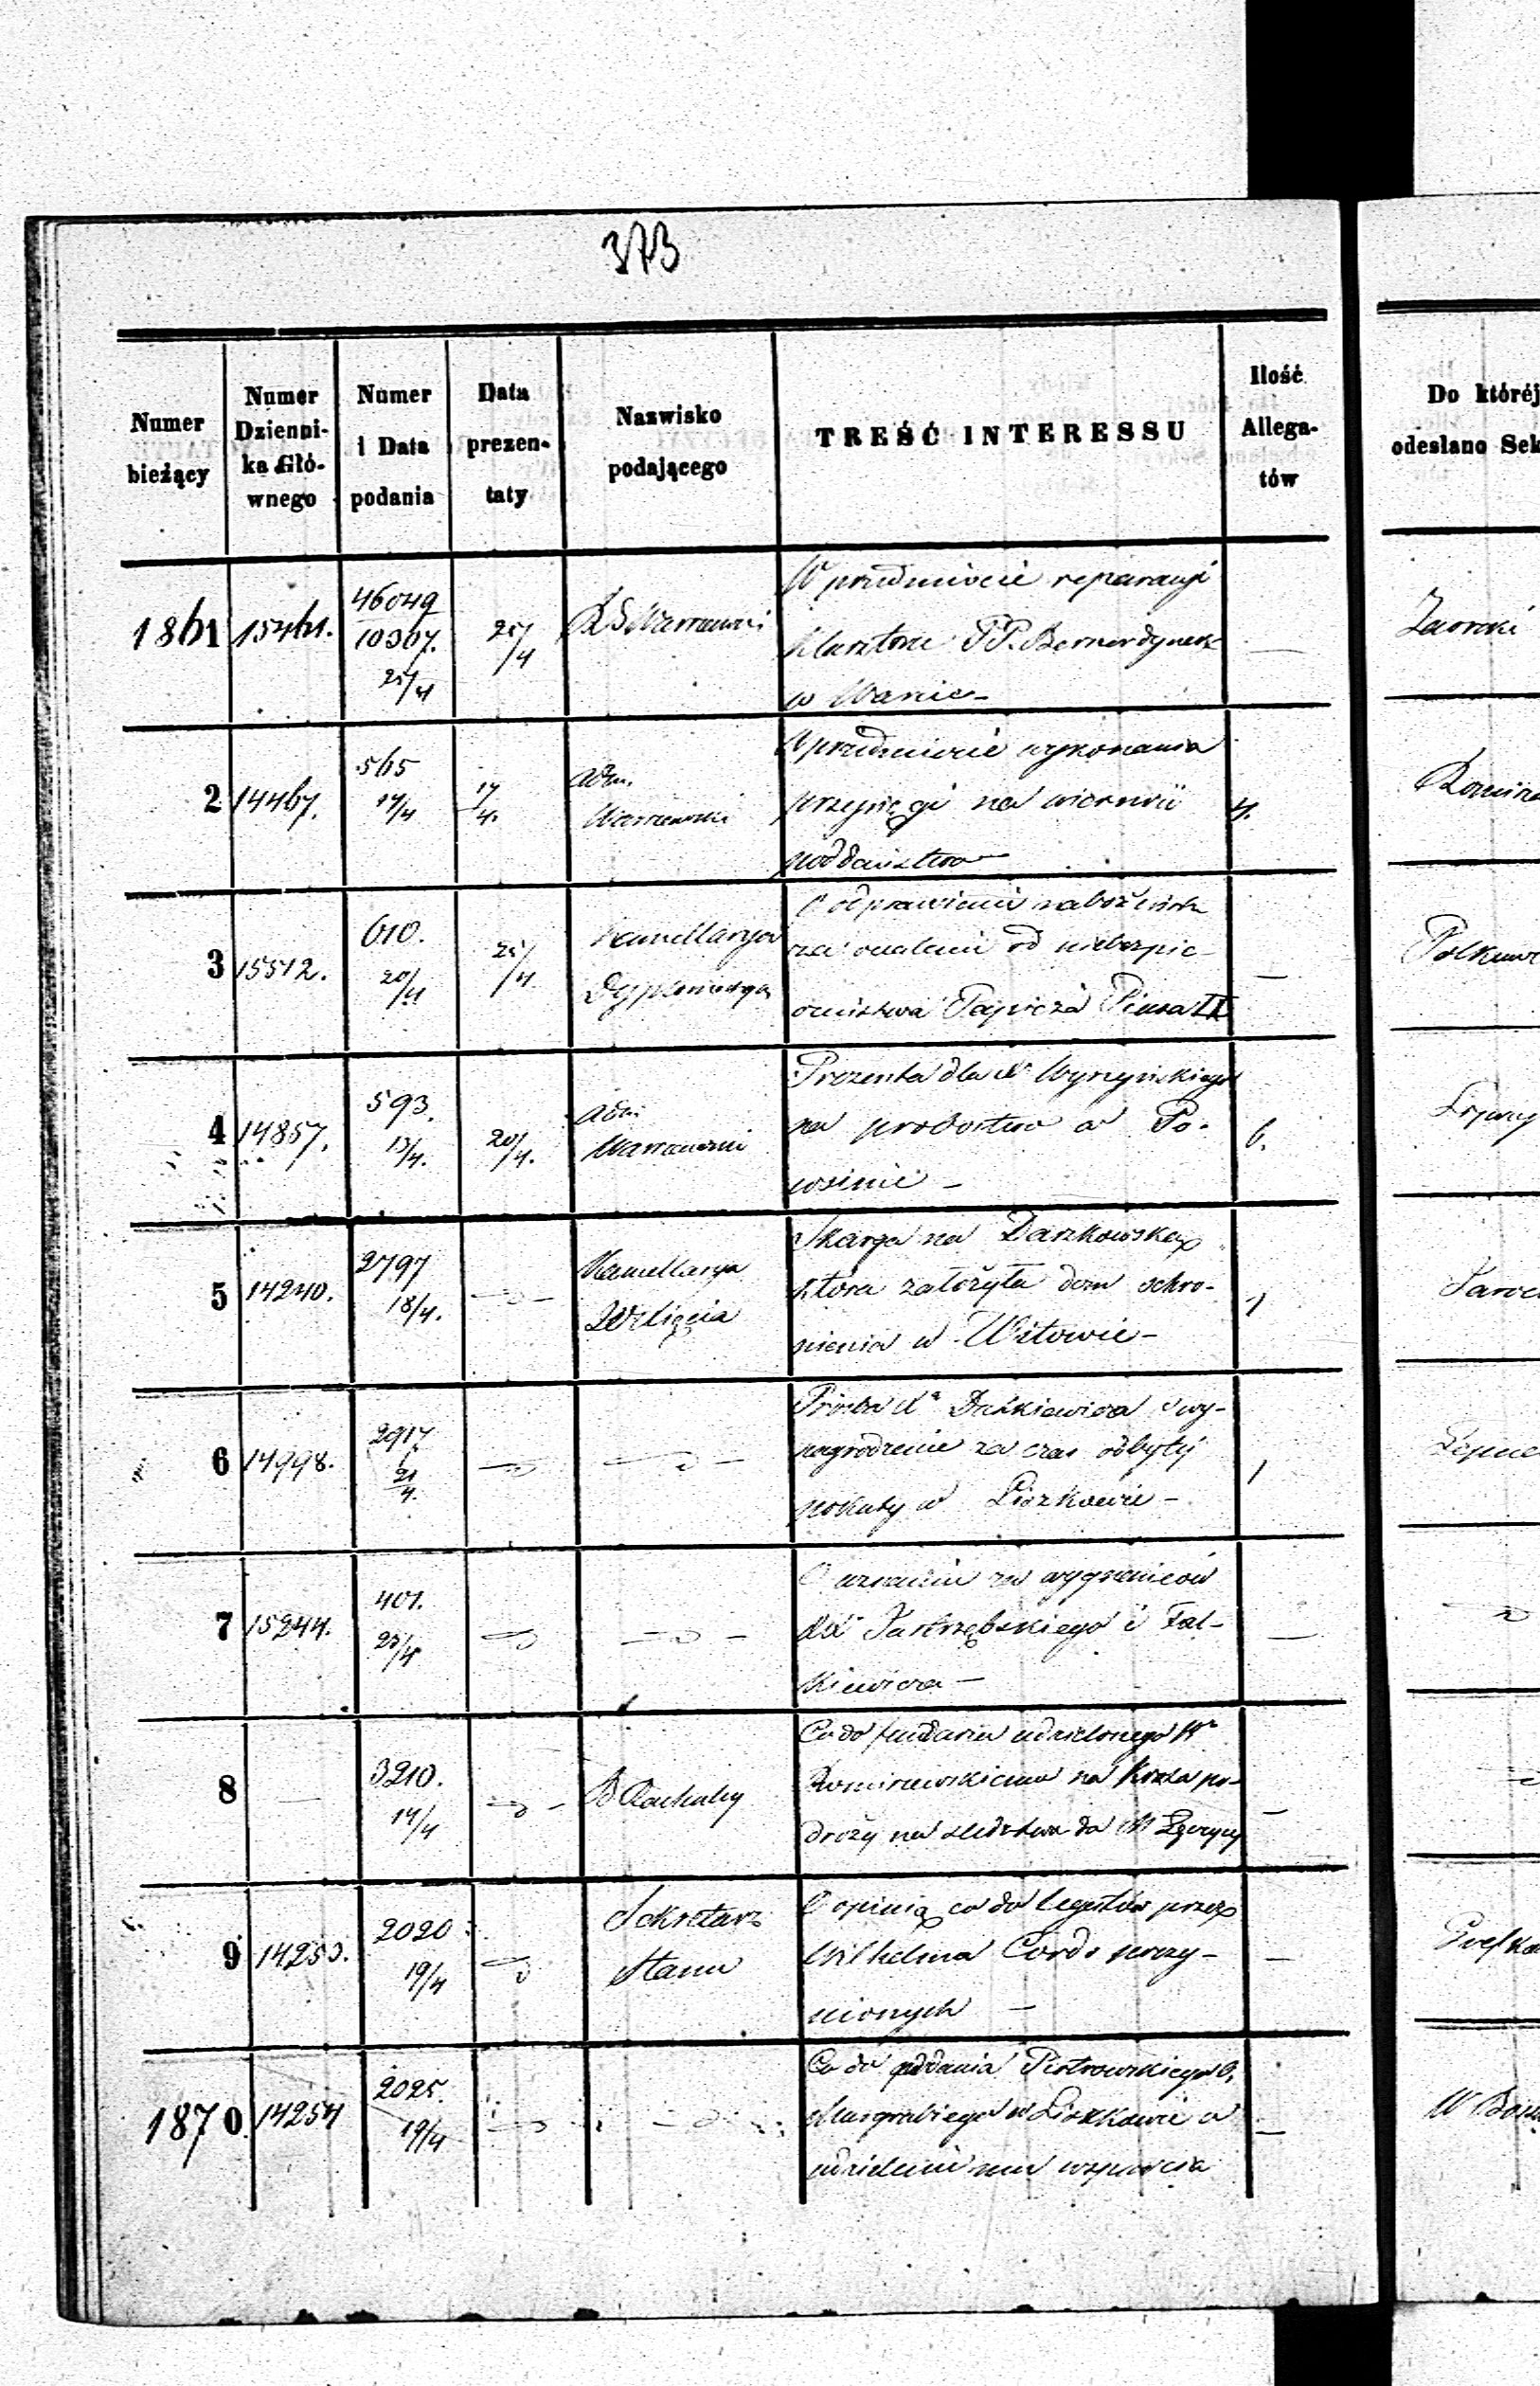 373
Numer bieżący | Numer Dzienni- ka Głó- wnego | Numer i Data podania | Data prezen- taty | Nazwisko podającego | TREŚĆ INTERESSU | Ilość Allega- tów | Do któréj odesłano Sek
1861 | 15461. | 46049 / 10367. 25/4 | 25/4 | RG Warszawski | W przedmiocie reparacyi
klasztoru PP. Bernardynek
w Warcie – | — | Zaorski
2 | 14467. | 565 17/4 | 17/4. | Adm. Warszawski | W przedmiocie wykonania
przysięgi na wierność
poddaństwa – | 4.
3 | 15512. | 610. 20/4 | 25/4 | Kancellarya Dyplomatycz | O odprawieniu nabożeństw
za ocalenie od niebezpie-
czeństwa Papieża Piusa IX | —
4 | 14857. | 593. 13/4. | 20/4. | Adm Warszawski | Prezenta dla X Wyszyńskiego
na probostwo w Po-
wsinie – | 6.
5 | 14240. | 2797 18/4. | — | Kancellarya XWDzięcia | Skarga na Daszkowską
która założyła dom schro-
nienia w Witowie – | 1
6 | 14998. | 2917 21/4. | — | — | Prośba Xa Daszkiewicza o wy-
nagrodzenie za czas odbytej
pokuty w Liszkowie – | 1
7 | 15244. | 401. 25/4 | — | — | O uznaniu za wygnańców
XX Jastrzębskiego i Fal-
kiewicza – | —
8 | — | 3210. 14/4 | — | B Rachuby | Co do funduszu udzielonego
na koszta po-
droży na śledztwo do M Łęczycy | —
9 | 14253. | 2020 19/4 | — | Sekretarz Stanu | O opinią co do legatów przez
Wilhelma Cords uczy-
nionych – | —
1870. | 14254 | 2025. 19/4 | — | — | Co do podania Piotrowskiego
Margrabiego w Liszkowie o
udzielenie mu wsparcia | —